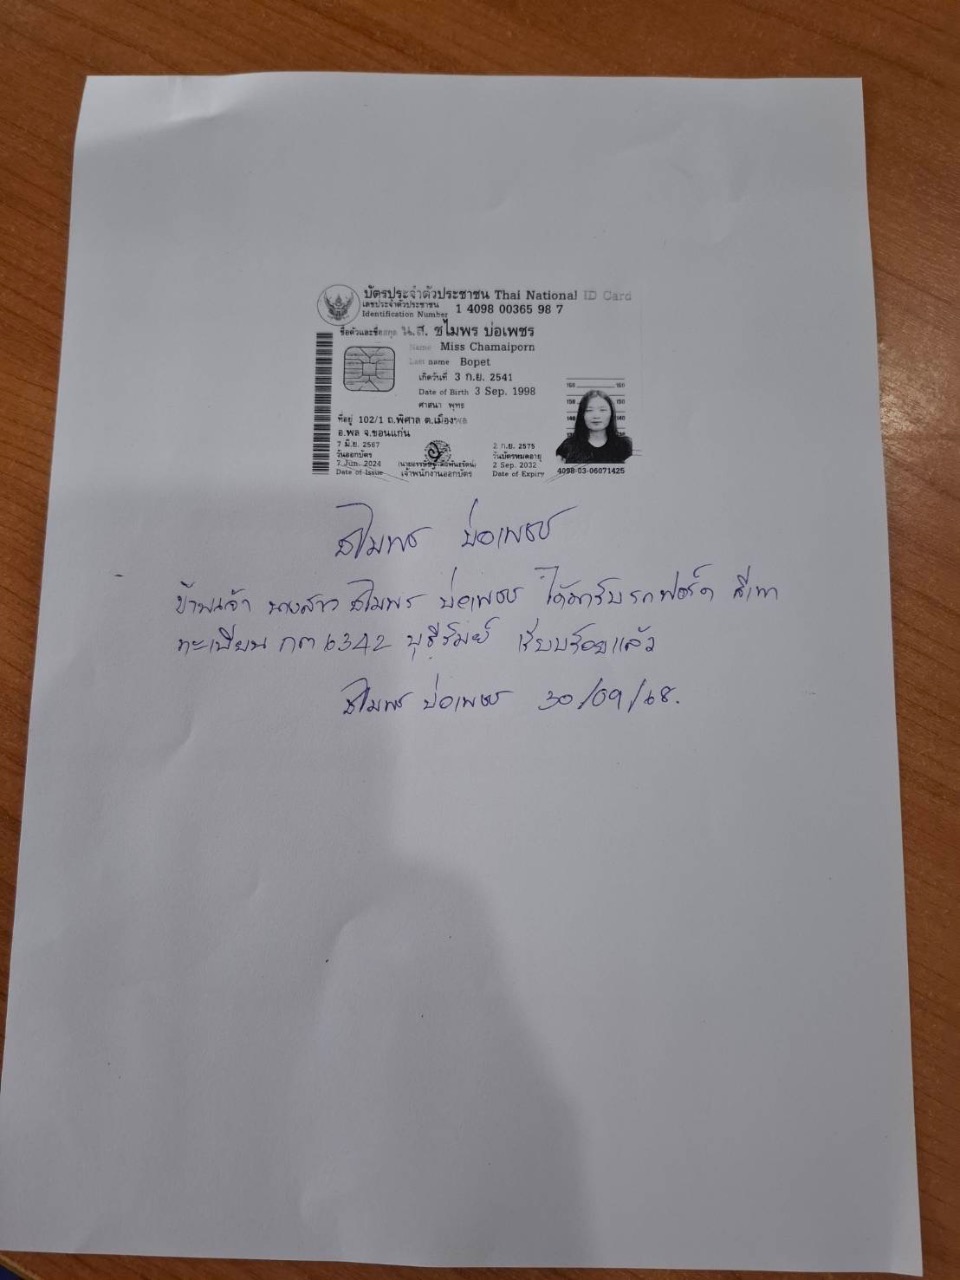 บัตรประจำตัวประชาชน Thai National ID Card
เลขประจำตัวประชาชน
Identification Number 1 4098 00365 98 7
ชื่อตัวและชื่อสกุล น.ส. ชไมพร บ่อเพชร
Name Miss Chamaiporn
Last name Bopet
เกิดวันที่ 3 ก.ย. 2541
Date of Birth 3 Sep. 1998
ศาสนา พุทธ
ที่อยู่ 102/1 ถ.พิศาล ต.เมืองพล
อ.พล จ.ขอนแก่น
7 มิ.ย. 2567
วันออกบัตร
7 Jun. 2024
Date of Issue
เจ้าพนักงานออกบัตร
2 ก.ย. 2575
วันบัตรหมดอายุ
2 Sep. 2032
Date of Expiry
4098-03-06071425
ชไมพร บ่อเพชร
ข้าพเจ้า นางสาว ชไมพร บ่อเพชร ได้มารับรถฟอร์ด สีเทา
ทะเบียน กต 6342 บุรีรัมย์ เรียบร้อยแล้ว
ชไมพร บ่อเพชร 30/09/68.